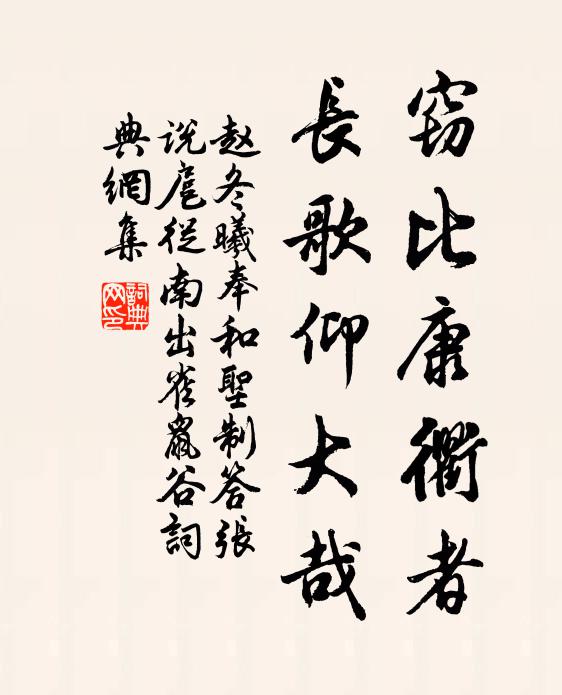 窃比康衢者
長歌仰大哉
赵冬曦奉和聖制答張
说扈從南出雀鼠谷詞
典網集
詞典
网印